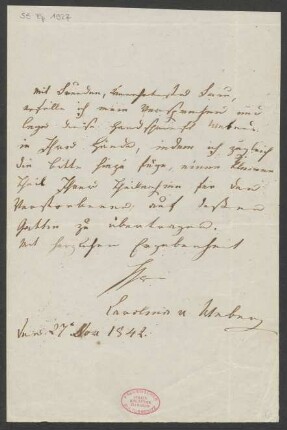 Mit Freuden, hochverehrter Frau,
erfülle ich mein Versprechen und
lege diese Handschrift Webers
in Ihre Hände, indem ich zugleich
die Bitte hinzu füge, einen kleinen
Theil Ihrer Theilnahme für den
Verstorbenen auf dessen
Gatten zu übertragen.
Mit herzlicher Ergebenheit
Ihre
Caroline v Weber
27 1842.